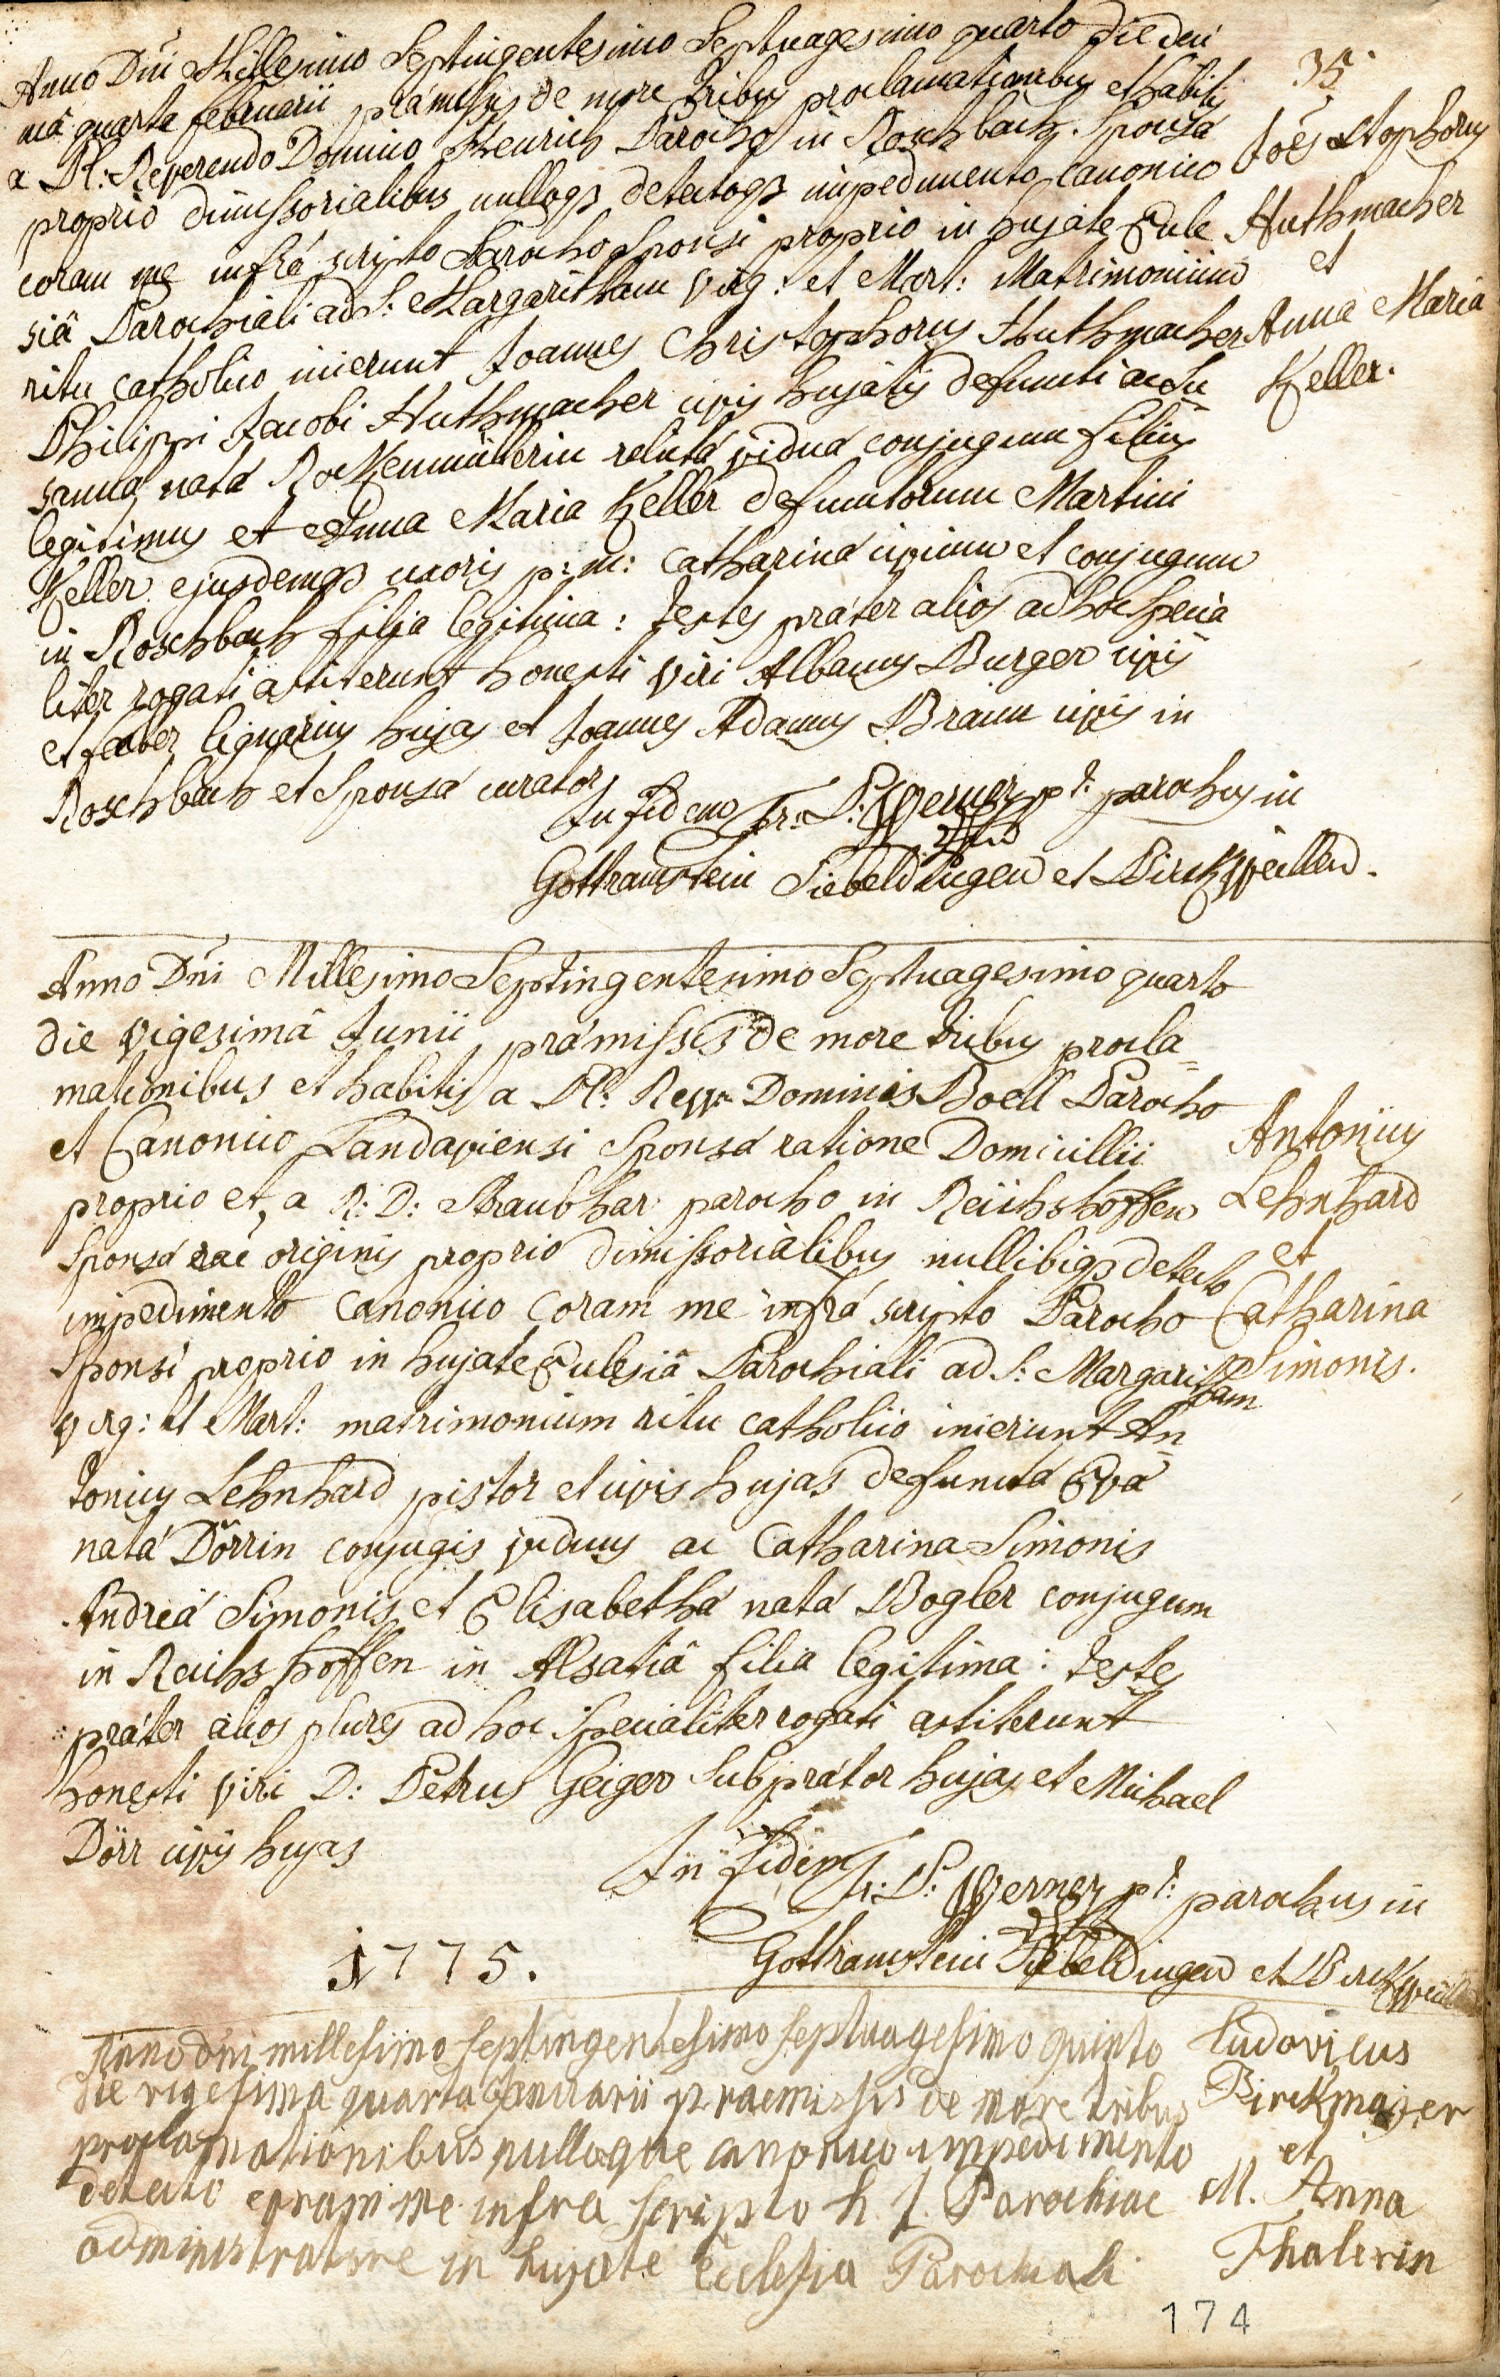 35.
Anno Dni Millesimo Septingentesimo Septuagesimo quarto die deci
ma quarta februarii praemissis de more tribus proclamationibus et habitis
a Pl: Reverendo Domino Henrich Parocho in Roschbach Sponsa
proprio dimissorialibus nulloq3 detectoq3 impedimento canonico
coram me infra scripto Parocho Sponsi proprio in hujate Eccle
siâ Parochiali ad S: Margaritham Virg: et Mart: Matrimonium
ritu catholico inierunt Joannes Christophorus Huthmacher
Philippi Jacobi Huthmacher civis hujatis defuncti ac Su=
sanna nata Rockenmüllerin relicta vidua conjugum filius
legitimus et Anna Maria Keller defunctorum Martini
Keller ejusdemq3 uxoris p: m: Catharina civium et conjugum
in Roschbach filia legitima: Testes praeter alios ad hoc specia
liter rogati astiterunt honesti viri Albanus Burger civis
et faber lignarius hujas et Joannes Adamus Braun civis in
Roschbach et Sponsa curator
Joes Xtophorus
Huthmacher
et
Anna Maria
Keller.
In Fidem Fr: P: Werner pt: parochus in
Gottramstein Siebeldingen et Birckweillen.
Anno Dni Millesimo Septingentesimo Septuagesimo quarto
die vigesimâ Junii praemissis de more tribus procla=
mationibus et habitis a Pl: Rev: Dominis Boell Parocho
et Canonico Landaviensi Sponsa ratione Domicillii
proprio et a R: D: Straubhar parocho in Reichshoffen
Sponsa rae originis proprio dimissorialibus nullibiq3 detecto
impedimento canonico coram me infra scripto Parocho
Sponsi proprio in hujate Ecclesiâ Parochiali ad S: Margaritham
Virg: et Mart: matrimonium ritu catholico inierunt An=
tonius Lehnhard pistor et civis hujas defuncta Eva
nata Dörrin conjugis viduus ac Catharina Simonis
Andrea Simonis et Elisabetha nata Bogler conjugum
in Reichshoffen in Alsatiâ filia legitima: Testes
praeter alios plures ad hoc specialiter rogati astiterunt
honesti viri D: Petrus Geiger Subpraetor hujas et Michael
Dörr civis hujas
Antonius
Lehnhard
et
Catharina
Simonis.
In Fidem Fr: P: Werner pt: parochus in
Gottramstein Siebeldingen et Birckweill
1775.
Anno dni millesimo septingentesimo septuagesimo quinto
die vigesima quarta Januarii praemissis de more tribus
proclamationibus nulloque canonico impedimento
detecto coram me infra scripto h. t. Parochiae
administratore in hujate Ecclesia Parochiali
Ludovicus
Birckmajer
et
M. Anna
Thalerin
174